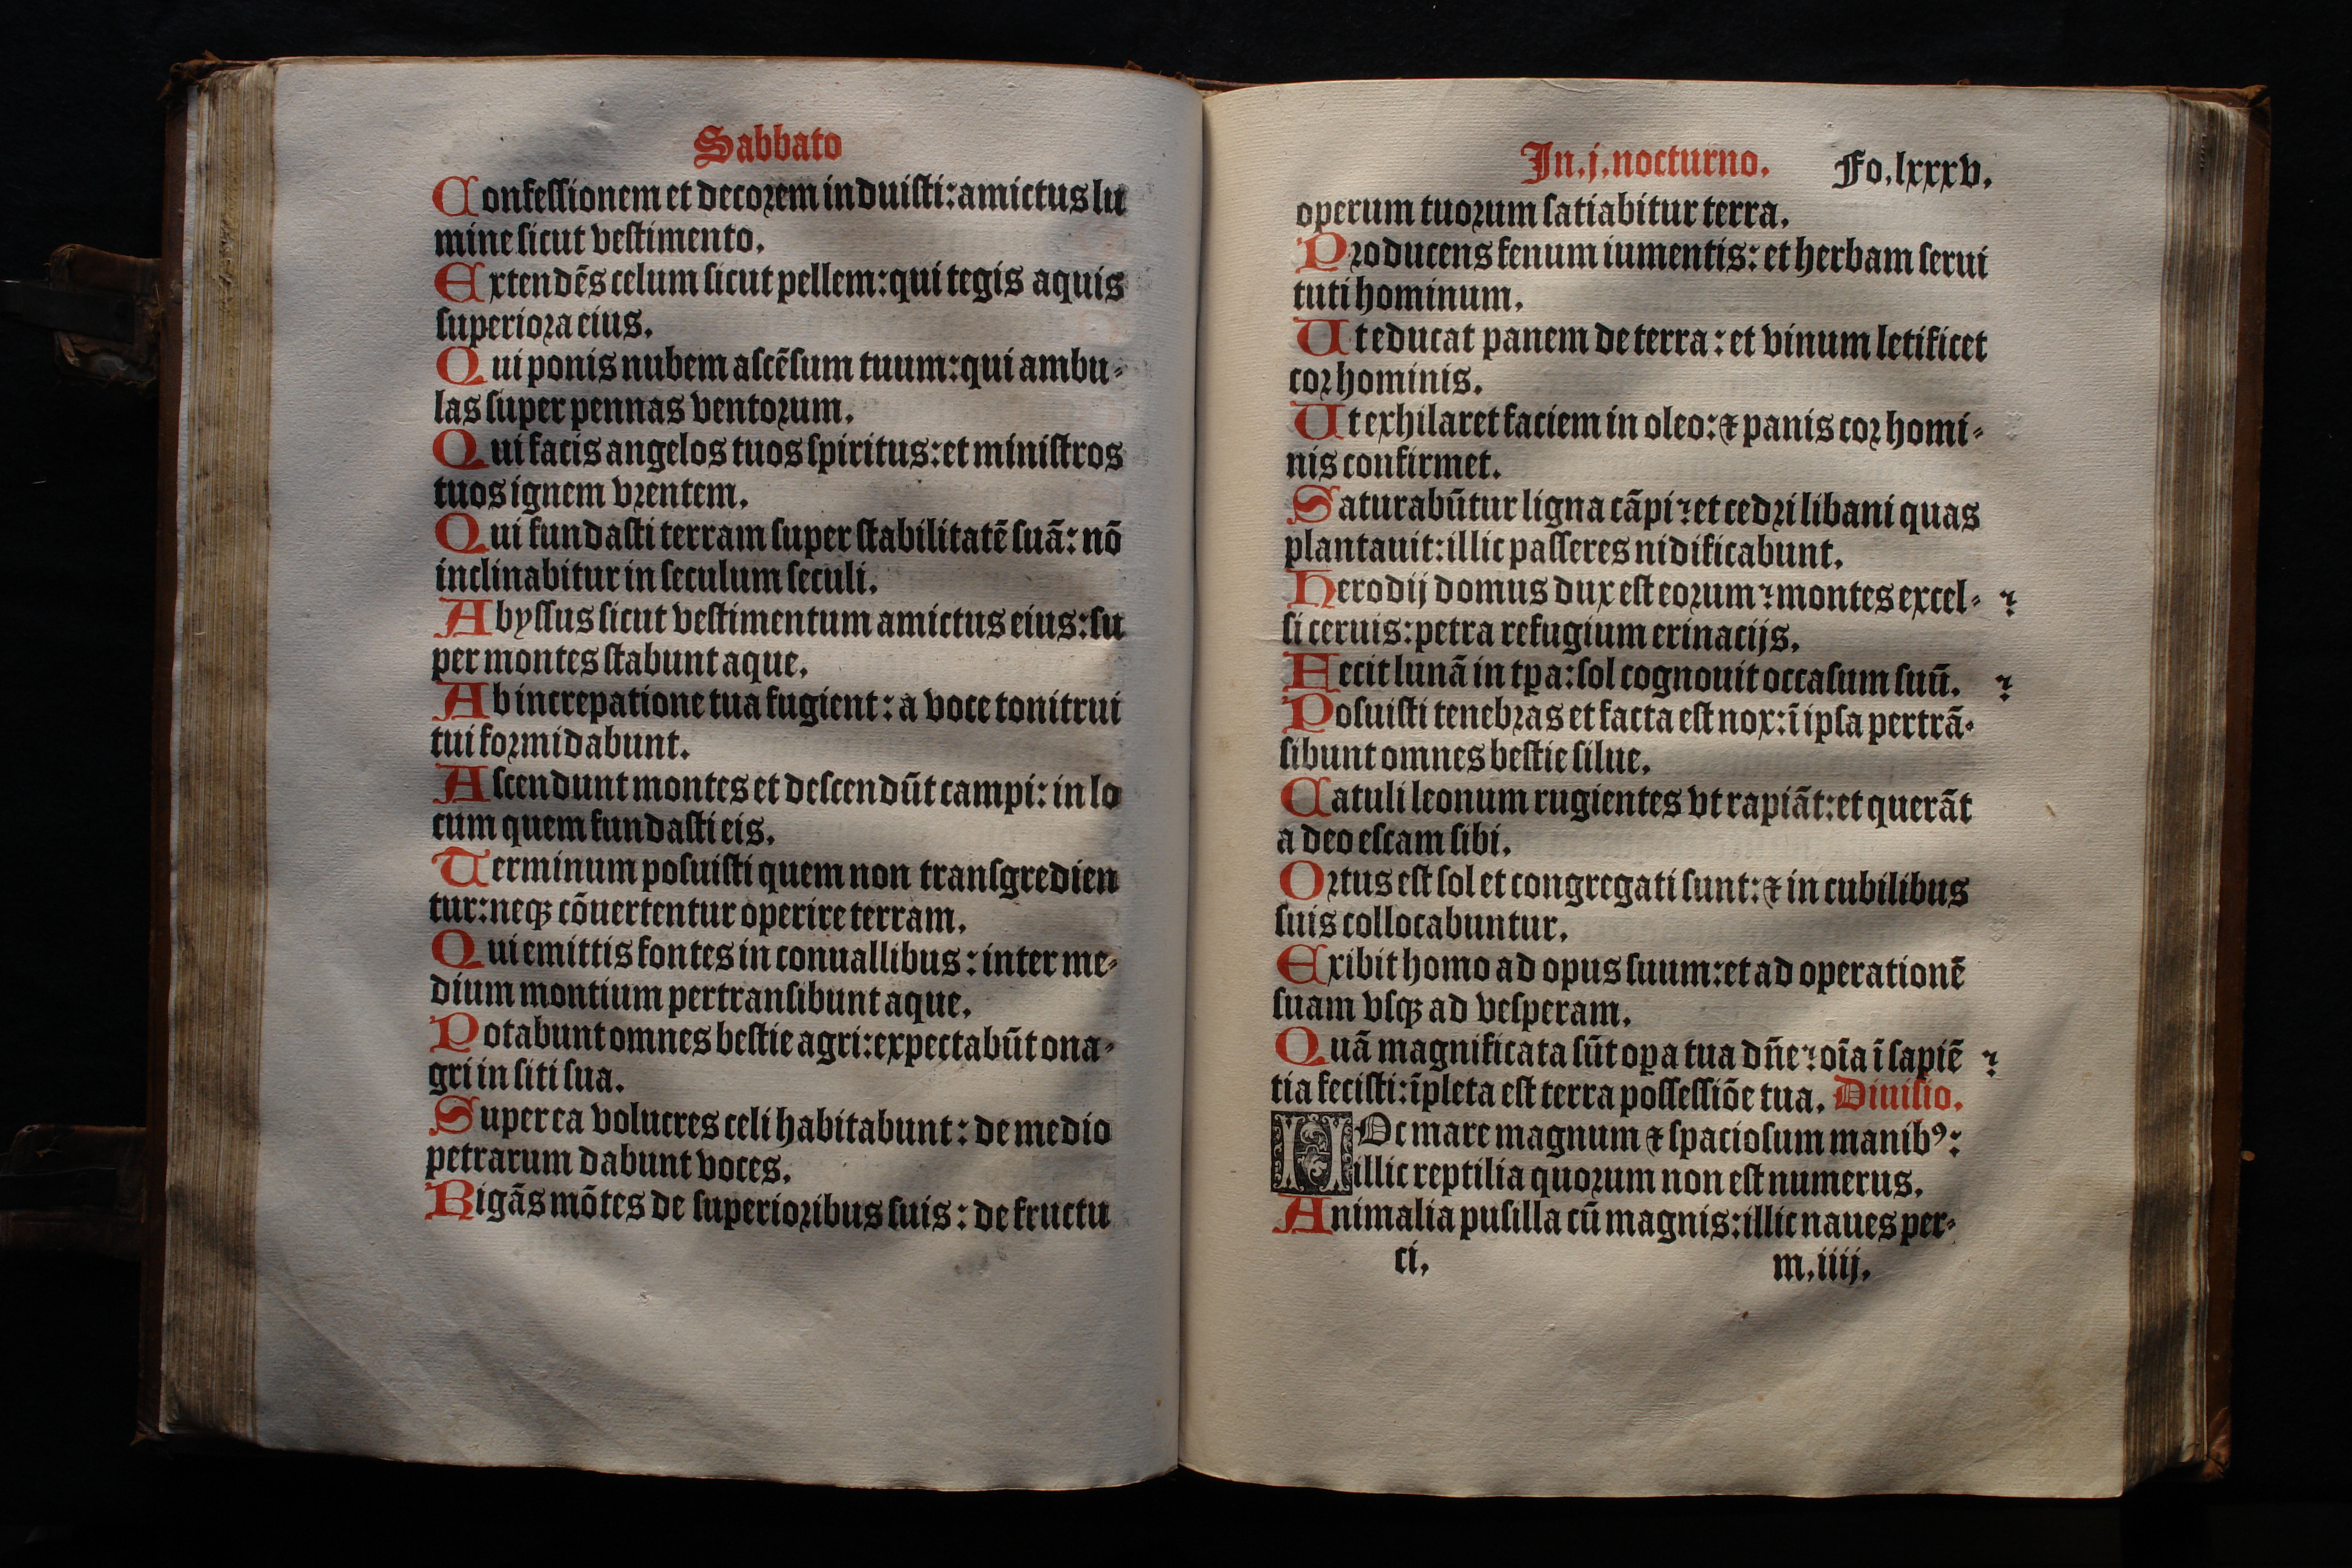 Sabbato
Confessionem et decorem induisti: amictus lu
mine sicut vestimento.
Extendēs celum sicut pellem: qui tegis aquis
superiora eius.
Qui ponis nubem ascēsum tuum: qui ambu-
las super pennas ventorum.
Qui facis angelos tuos spiritus: et ministros
tuos ignem vrentem.
Qui fundasti terram super stabilitatē suā: nō
inclinabitur in seculum seculi.
Abyssus sicut vestimentum amictus eius: su
per montes stabunt aque.
Ab increpatione tua fugient: a voce tonitrui
tui formidabunt.
Ascendunt montes et descendūt campi: in lo
cum quem fundasti eis.
Terminum posuisti quem non transgredien
tur: neqꝫ cōuertentur operire terram.
Qui emittis fontes in conuallibus: inter me-
dium montium pertransibunt aque.
Potabunt omnes bestie agri: expectabūt ona-
gri in siti sua.
Super ea volucres celi habitabunt: de medio
petrarum dabunt voces.
Rigās mōtes de superioribus suis: de fructu
In.j.nocturno. Fo.lxxxv.
operum tuorum satiabitur terra.
Producens fenum iumentis: et herbam serui
tuti hominum.
Ut educat panem de terra: et vinum letificet
cor hominis.
Ut exhilaret faciem in oleo: ⁊ panis cor homi-
nis confirmet.
Saturabūtur ligna cāpi? et cedri libani quas
plantauit: illic passeres nidificabunt.
Herodij domus dux est eorum? montes excel- ?
si ceruis: petra refugium erinacijs.
Fecit lunā in tꝑa: sol cognouit occasum suū. ?
Posuisti tenebras et facta est nox: ī ipsa pertrā-
sibunt omnes bestie silue.
Catuli leonum rugientes vt rapiāt: et querāt
a deo escam sibi.
Ortus est sol et congregati sunt: ⁊ in cubilibus
suis collocabuntur.
Exibit homo ad opus suum: et ad operationē
suam vsqꝫ ad vesperam.
Quā magnificata sūt oꝑa tua dn̄e? oīa ī sapiē ?
tia fecisti: īpleta est terra possessiōe tua. Diuisio.
HOc mare magnum ⁊ spaciosum manibꝰ:
illic reptilia quorum non est numerus.
Animalia pusilla cū magnis: illic naues per-
ci. m.iiij.